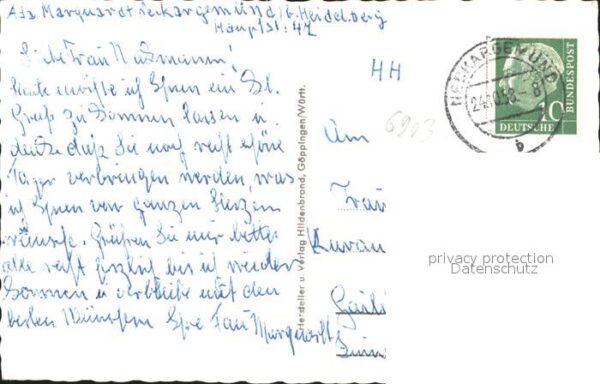 Ads Marquardt Neckargemünd/b. Heidelberg
Haupstr. 47
Liebe Frau Nußmann!
heute möchte ich Ihnen ein Bl.
Gruß zu kommen lassen u.
denke daß Sie noch recht schöne
Tage verbringen werden, was
ich Ihnen von ganzen Herzen
wünsche. Grüßen Sie mir bitte
alle recht herzlich bis ich wieder
komme u verbleibe mit den
besten Wünschen Ihre Frau Marquardt
HH
6903
Am
Frau
Kuran
Gaili
Hersteller u. Verlag Hildenbrand, Göppingen/Württ.
NECKARGEMÜND
24.10.58 - 8
b
10
DEUTSCHE
BUNDESPOST
privacy protection
Datenschutz